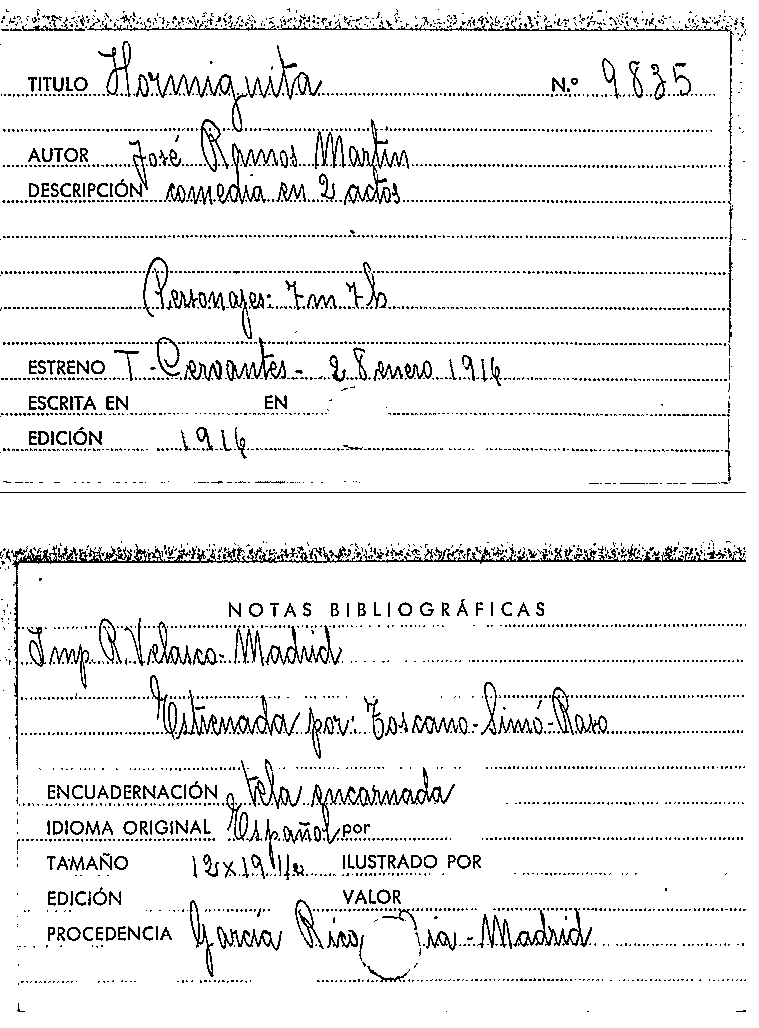 TITULO Hormiguita N.º 9835
AUTOR José Ramos Martín
DESCRIPCIÓN comedia en 2 actos
Personajes: 7m 7h
ESTRENO T. Cervantes - 28 enero 1916
ESCRITA EN EN
EDICIÓN 1916
NOTAS BIBLIOGRÁFICAS
Imp. R. Velasco - Madrid
Estrenada por: Toscano - Simó-Raso
ENCUADERNACIÓN tela encarnada
IDIOMA ORIGINAL Español por
TAMAÑO 12 x 19 1/2 ILUSTRADO POR
EDICIÓN VALOR
PROCEDENCIA García Rico ia - Madrid